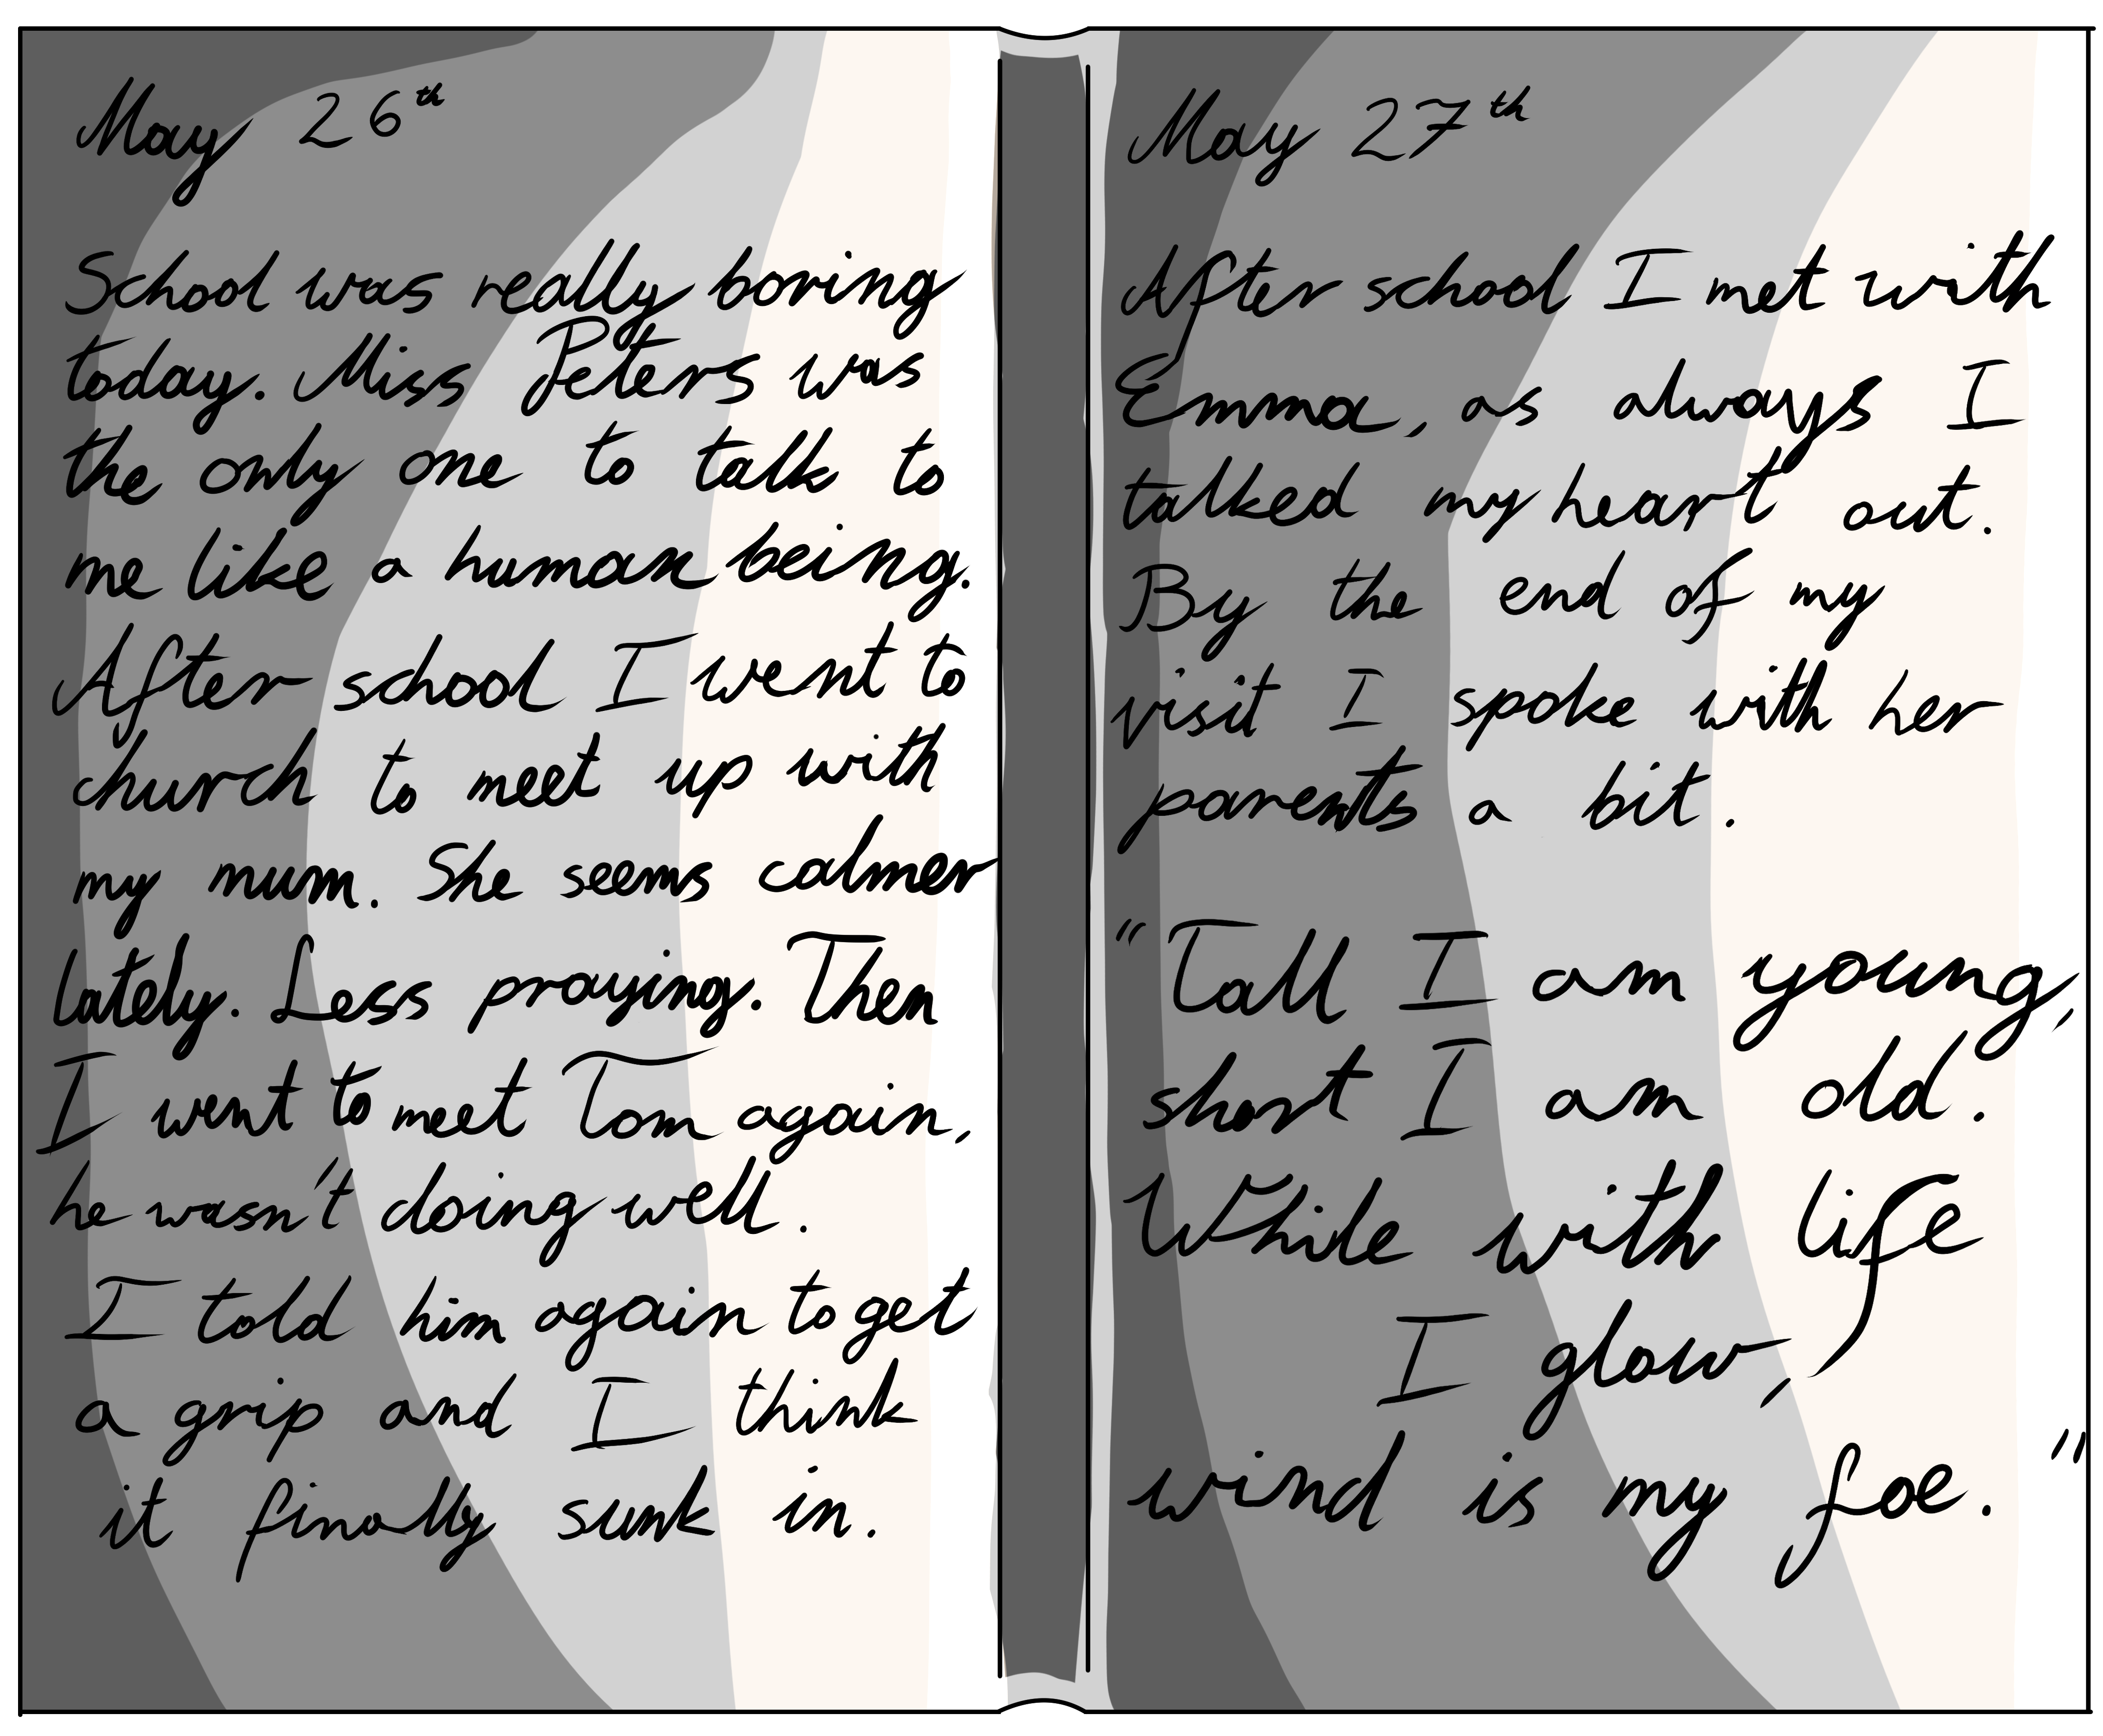 May 26th
School was really boring
today. Miss Peters was
the only one to talk to
me like a human being.
After school I went to
church to meet up with
my mum. She seems calmer
lately. Less praying. Then
I went to meet Tom again,
he wasn't doing well.
I told him again to get
a grip and I think
it finally sunk in.
May 27th
After school I met with
Emma, as always I
talked my heart out.
By the end of my
visit I spoke with her
parents a bit.
"Tall I am young,
short I am old.
While with life
I glow,
wind is my foe."